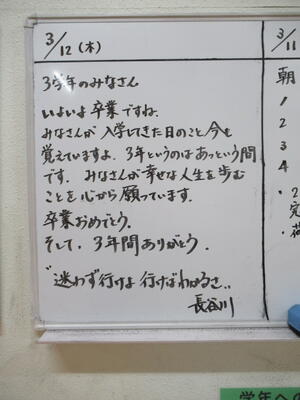 3/12 (木)
3学年のみなさん
いよいよ卒業ですね.
みなさんが入学してきた日のこと今も
覚えていますよ. 3年というのはあっという間
です. みなさんが幸せな人生を歩む
ことを心から願っています.
卒業おめでとう.
そして, 3年間ありがとう.
"迷わず行けよ 行けばわかるさ"
長谷川
3/11
朝
1
2
3
4
・2
・
学年への